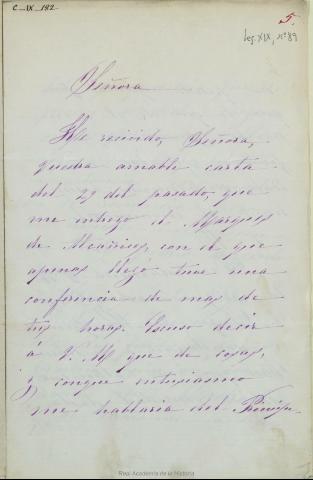 C-IX-182
5.
Leg. XIX, nº 89
Señora
He recivido, Señora,
amable carta
del 29 del pasado, que
me entrego el Marques
de con el que
apenas llegó tuve una
conferencia de mas de
tres horas. Escuso decir
á V. M que de cosas,
y conque entusiasmo
me hablaria del Principe
Real Academia de la Historia